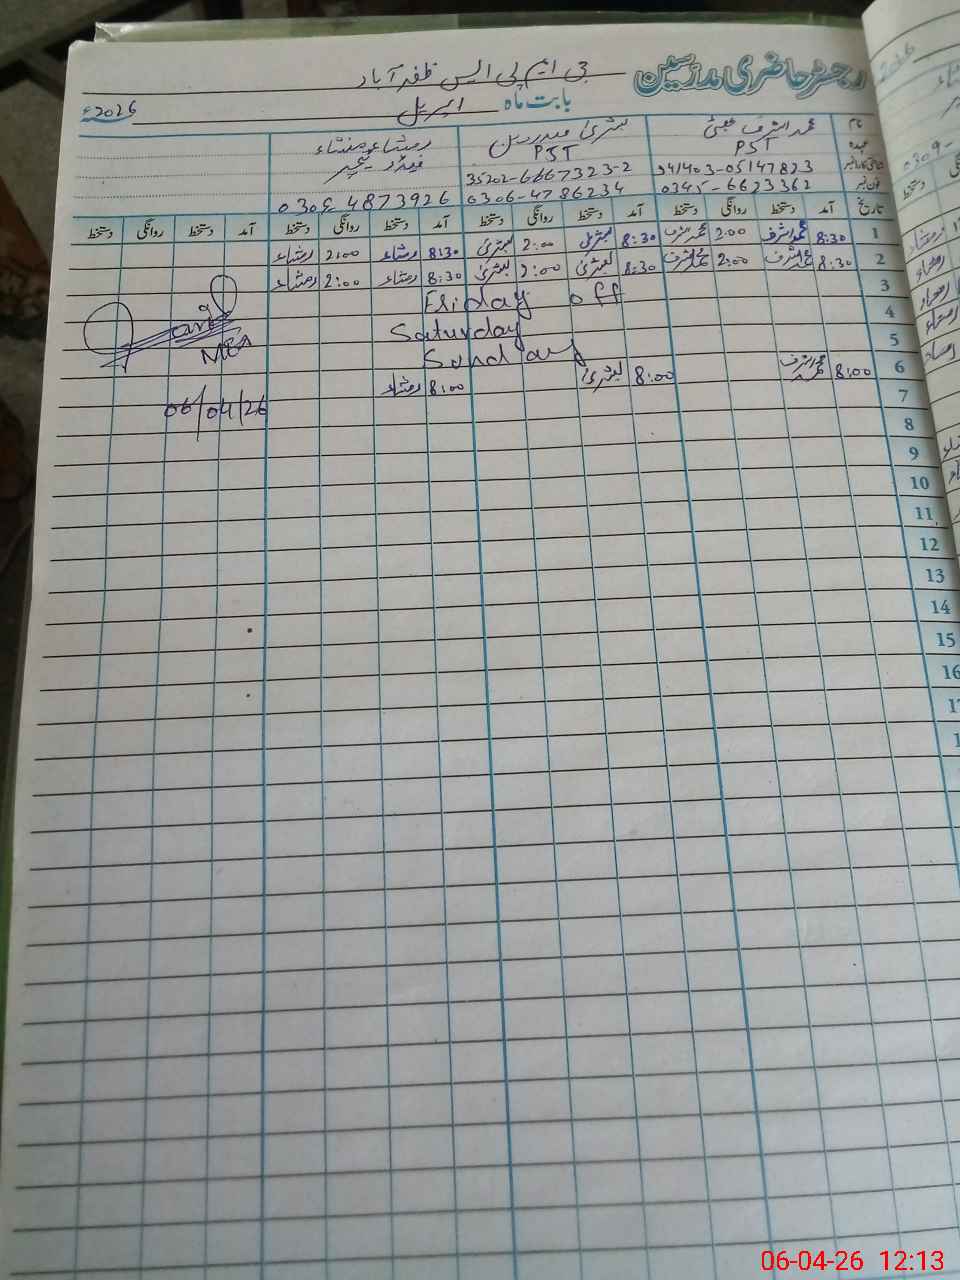 رجسٹر حاضری مدرسین جی ایم پی ایس ظفر آباد
بابت ماہ اپریل 2026ء
نام محمد اشرف بشریٰ رمشاء منشاء
عہدہ PST PST فیڈر ٹیچر
شناختی کارڈ نمبر 35202-6667323-2
فون نمبر 0345-6623362 0306-4786234 0306-4873926
تاریخ آمد دستخط روانگی دستخط آمد دستخط روانگی دستخط آمد دستخط روانگی دستخط آمد دستخط روانگی دستخط
1 8:30 محمد اشرف 2:00 محمد اشرف 8:30 بشریٰ 2:00 بشریٰ 8:30 رمشاء 2:00 رمشاء
2 8:30 محمد اشرف 2:00 محمد اشرف 8:30 بشریٰ 2:00 بشریٰ 8:30 رمشاء 2:00 رمشاء
3 Friday off
4 Saturday
5 Sunday
6 8:00 محمد اشرف 8:00 بشریٰ 8:00 رمشاء
MEA
06/04/26
7
8
9
10
11
12
13
14
15
16
06-04-26 12:13